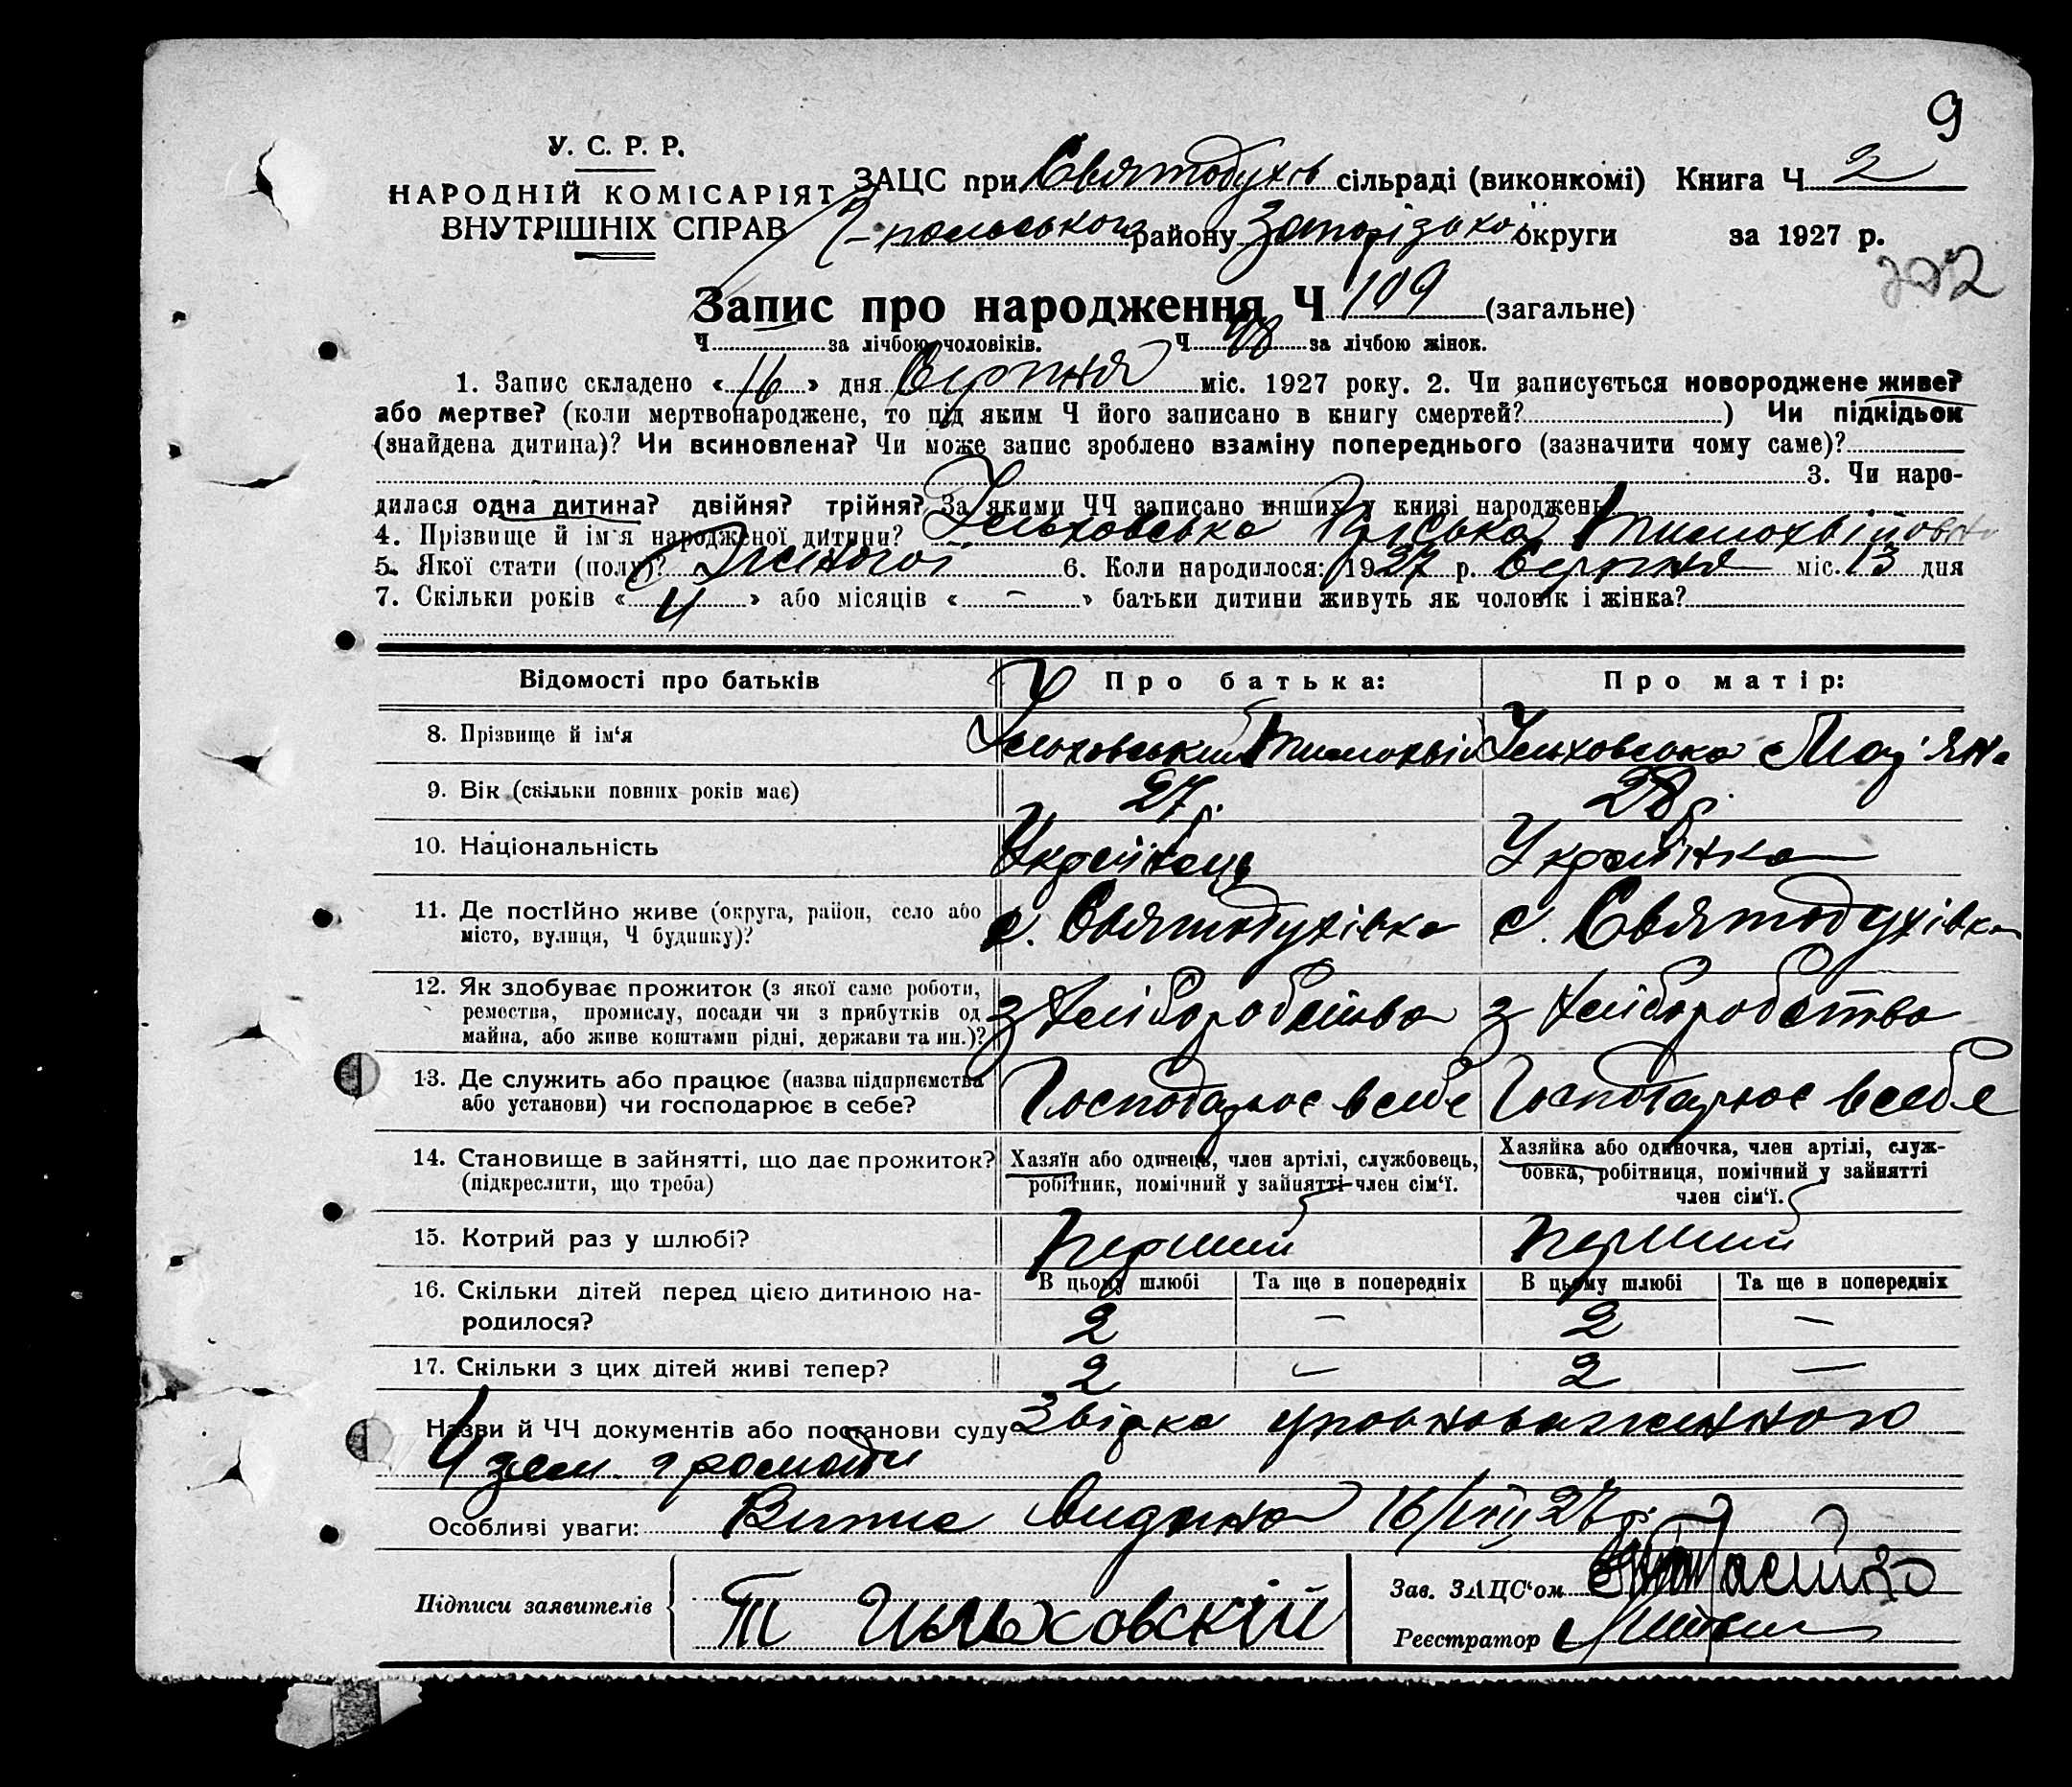 9
У. С. Р. Р.
НАРОДНІЙ КОМІСАРІЯТ
ВНУТРІШНІХ СПРАВ
ЗАЦС при Святодухів сільраді (виконкомі) Книга Ч 2
-польського району Запорізької округи за 1927 р.
202
Запис про народження Ч 109 (загальне)
Ч за лічбою чоловіків. Ч 48 за лічбою жінок.
1. Запис складено «16» дня Серпня міс. 1927 року. 2. Чи записується новороджене живе?
або мертве? (коли мертвонароджене, то під яким Ч його записано в книгу смертей? ) Чи підкідьок
(знайдена дитина)? Чи всиновлена? Чи може запис зроблено взаміну попереднього (зазначити чому саме)?
3. Чи наро-
дилася одна дитина? двійня? трійня? За якими ЧЧ записано инших у книзі народжень
4. Прізвище й ім'я народженої дитини? Ільховська Тимохвіївна
5. Якої стати (полу)? Жіночої 6. Коли народилося: 1927 р. Серпня міс. 13 дня
7. Скільки років «4» або місяців «-» батьки дитини живуть як чоловік і жінка?
Відомості про батьків Про батька: Про матір:
8. Прізвище й ім'я Ільховський Тимохвій Ільховська Мар'яна
9. Вік (скільки повних років має) 27 р. 28 р.
10. Національність Українець Українка
11. Де постійно живе (округа, район, село або
місто, вулиця, Ч будинку)? с. Святодухівка с. Святодухівка
12. Як здобуває прожиток (з якої саме роботи,
ремества, промислу, посади чи з прибутків од
майна, або живе коштами рідні, держави та ин.)? з хліборобства з хліборобства
13. Де служить або працює (назва підприємства
або установи) чи господарює в себе? Господарює в себе Господарює в себе
14. Становище в зайнятті, що дає прожиток?
(підкреслити, що треба)
Хазяїн або одинець, член артілі, службовець,
робітник, помічний у зайнятті член сім'ї.
Хазяйка або одиночка, член артілі, служ-
бовка, робітниця, помічний у зайнятті
член сім'ї.
15. Котрий раз у шлюбі? перший перший
В цьому шлюбі Та ще в попередніх В цьому шлюбі Та ще в попередніх
16. Скільки дітей перед цією дитиною на-
родилося? 2 — 2 —
17. Скільки з цих дітей живі тепер? 2 — 2 —
Назви й ЧЧ документів або постанови суду Звірка уповноваженного
зем. громади
Особливі уваги: Видана 16/VIII 27 р.
Підписи заявителів Т Ильховскій
Зав. ЗАЦС'ом
Реєстратор